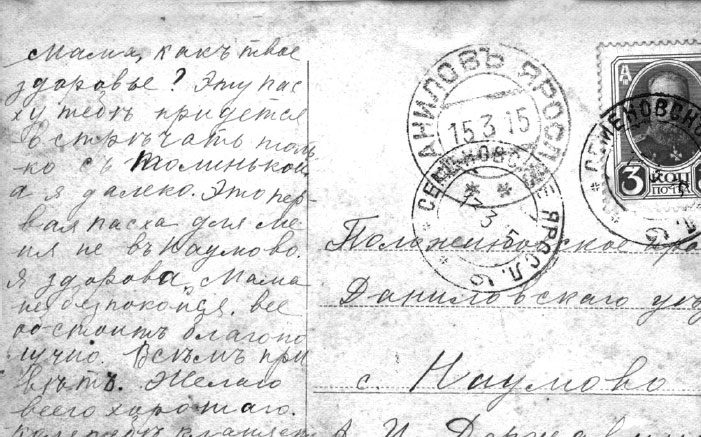 Мама, какъ твое
здоровье? Эту пас
ху тебѣ придется
встрѣчать толь
ко съ Толинькой
а я далеко. Это пер
вая пасха для ме
ня не въ Наумово.
Я здорова, Мама
не безпокойся. все
обстоитъ благопо
лучно. Всѣмъ при
вѣтъ. Желаю
всего хорошаго.
кланяет
ДАНИЛОВЪ ЯРОСЛ.
15.3.15
СЕМЕНОВСКОЕ ЯРОСЛ. Г.
СЕМЕНОВСКОЕ
3 КОП
ПОЧТ
Даниловскаго уѣз
с. Наумово
А. И.